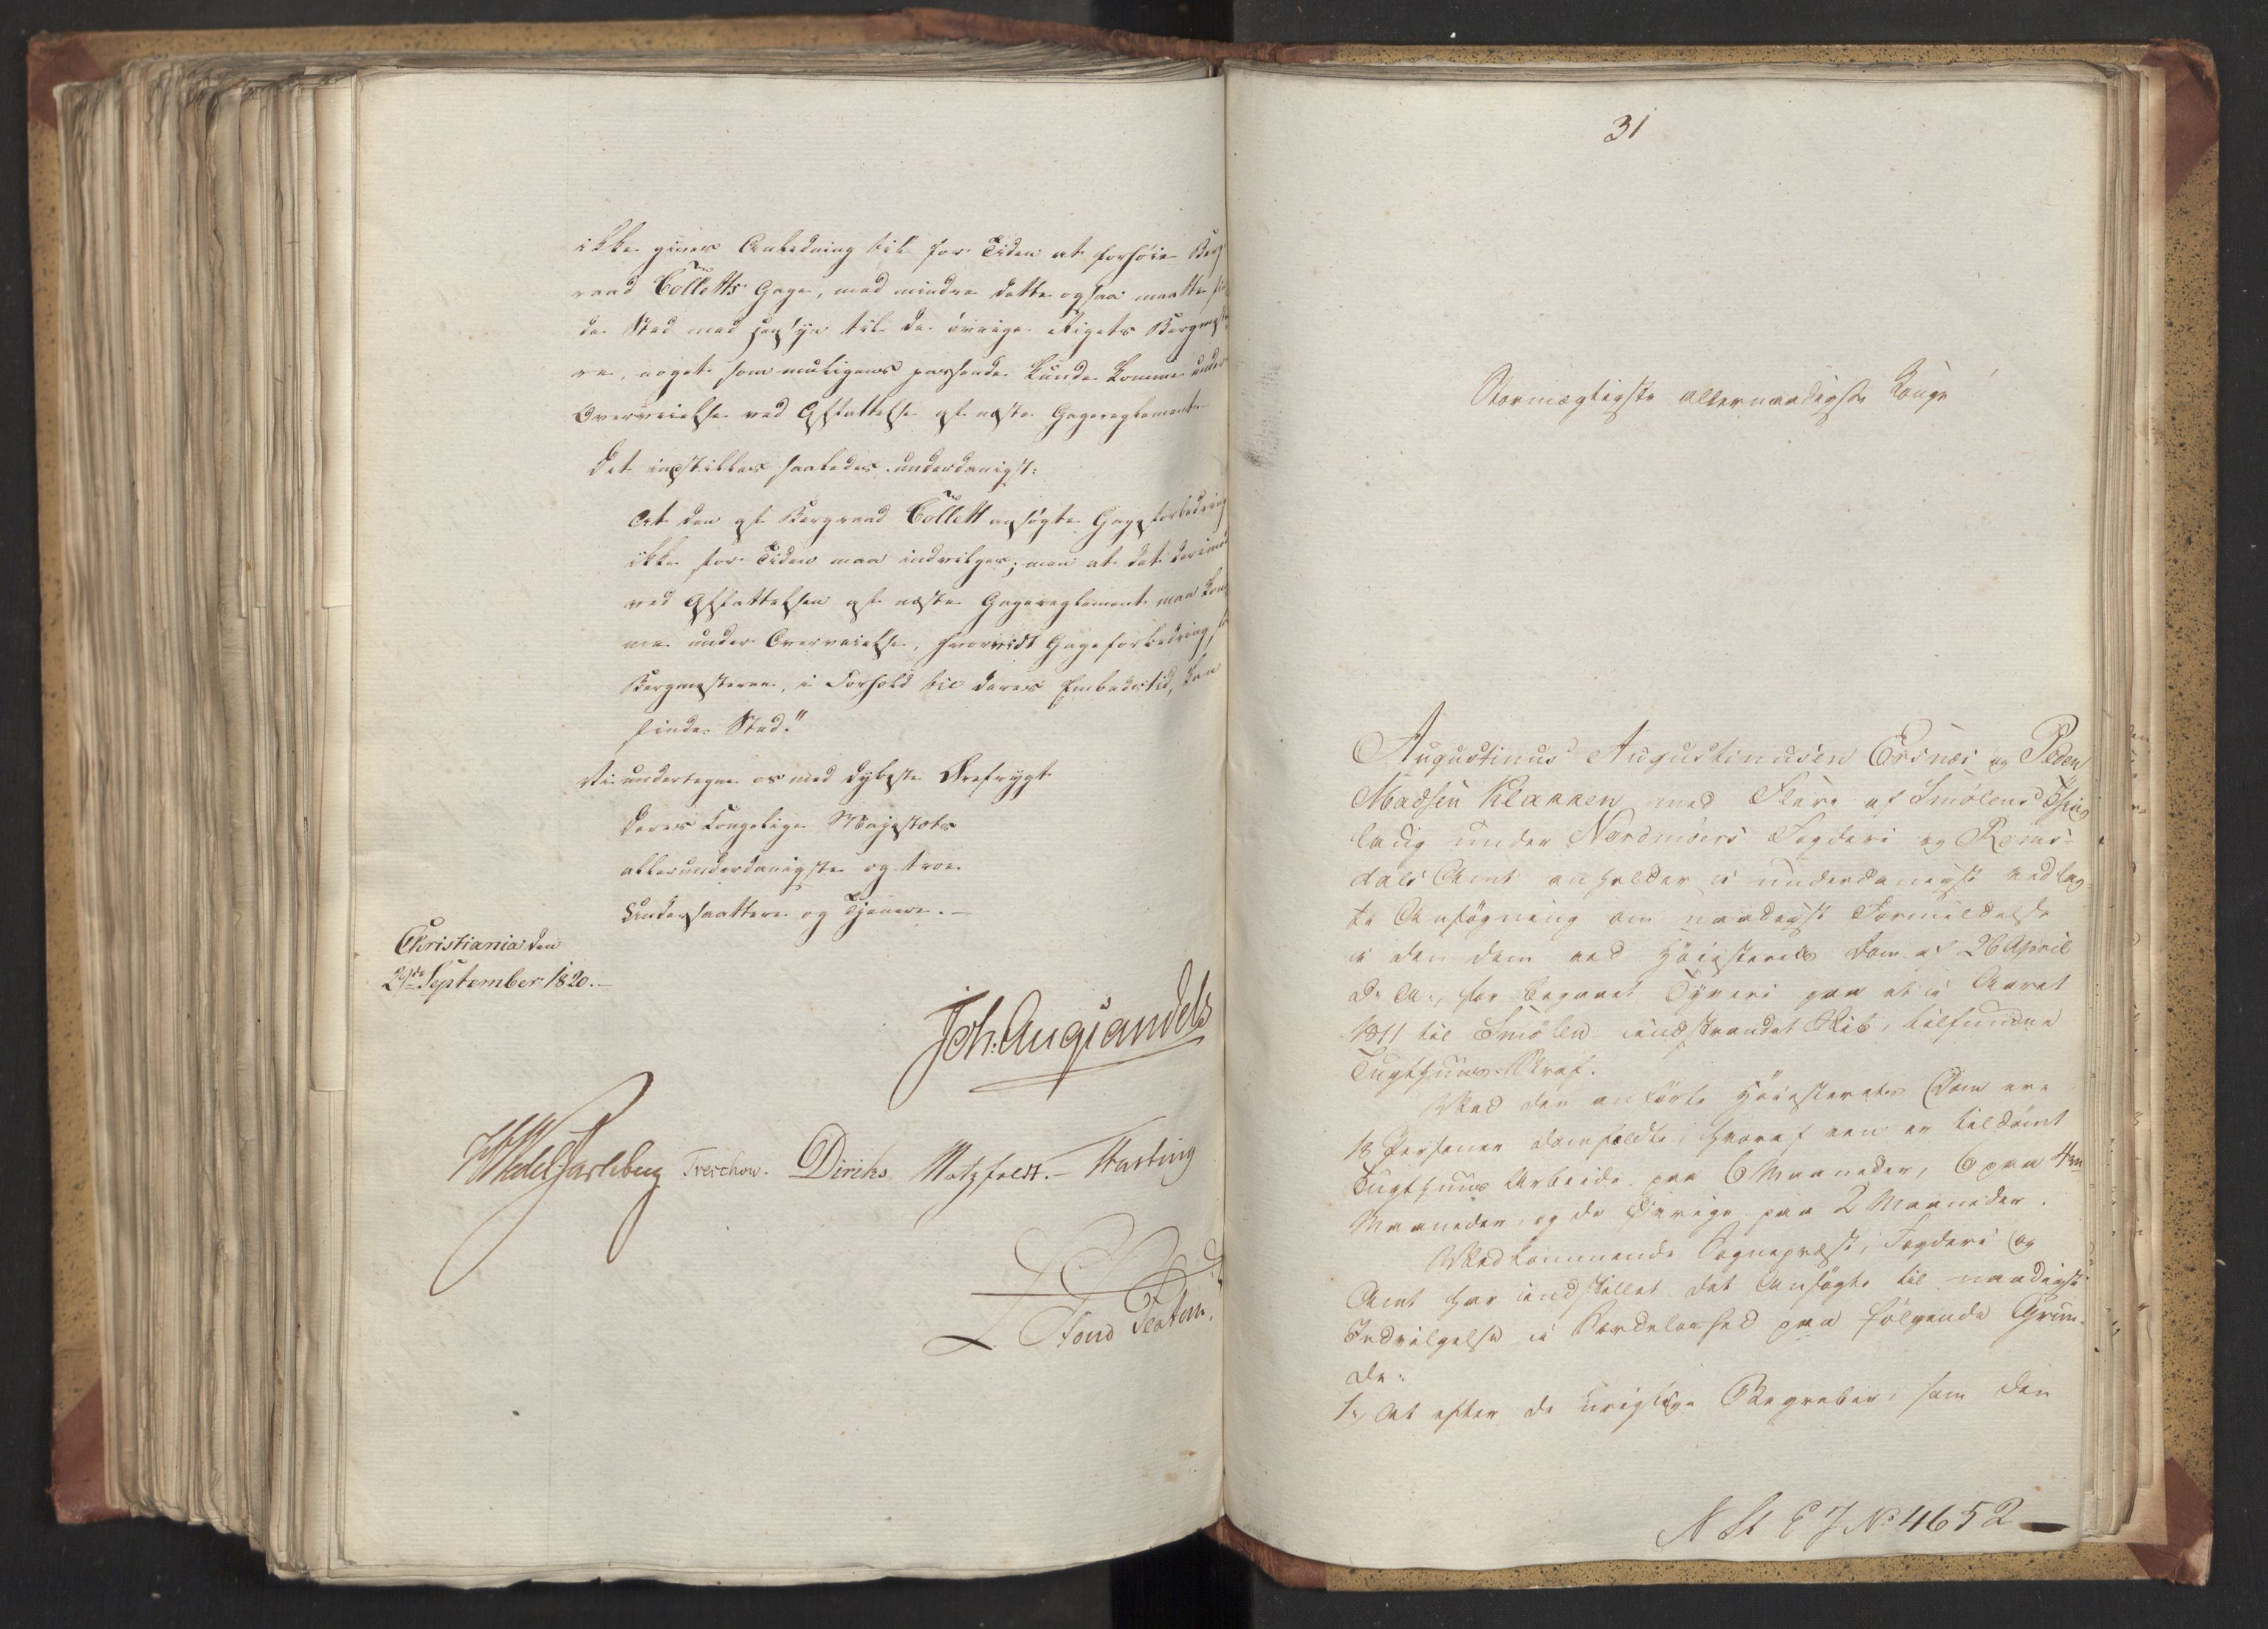 ikke gives Anledning til for Tiden at forhøie Berg
raad Colletts Gage, med mindre dette ogsaa maatte fin
de Sted med Hensyn til de øvrige Rigets Bergmeste
re, noget som muligens passende kunde komme under
Overveielse ved Affattelse af næste Gagereglement
Det indstilles saaledes underdanigst:
At den af Bergraad Collett ansøgte Gageforbedring
ikke for Tiden maa indvilges; men at det derimod
ved Affattelsen af næste Gagereglement maa kom
me under Overveielse, hvorvidt Gageforbedring for
Bergmesterne, i Forhold til deres Embedstid, kan
finde Sted."
Vi undertegne os med dybeste Ærefrygt
Deres Kongelige Majestæts
allerunderdanigste og troe
Undersaattere og Tjenere.—
Christiania den
29de September 1820.—
Joh: Aug: Sandels
HWedel Jarlsberg Treschow. Diriks Motzfeldt.— Fasting
31
Stormægtigste allernaadigste Konge!
Augustinus Augustinusen Ersnes og Peder
Madsen Klakken med Flere af Smølens Thing
laug under Nordmøers Fogderi og Roms-
dals Amt anholder i underdanigst vedlag-
te Ansøgning om naadigst Formildelse
i den dem ved Høiesterets Dom af 26 April
d: A:, for begaaet Tyveri paa et i Aaret
1811 til Smølen indstrandet Skib, tilfundne
Tugthuus Straf.
Ved den anførte Høiesterets Dom ere
18 Personer domfældte, hvoraf een er tildømt
Tugthuus Arbeide paa 6 Maaneder, 6 paa 4re
Maaneder, og de øvrige paa 2 Maaneder.
Vedkommende Sognepræst, Fogderi og
Amt har indstillet det Ansøgte til naadigst
Indvilgelse i Særdeleshed paa følgende Grun-
de:
1, At efter de urigtige Begreber, som den
N St E J No 4652